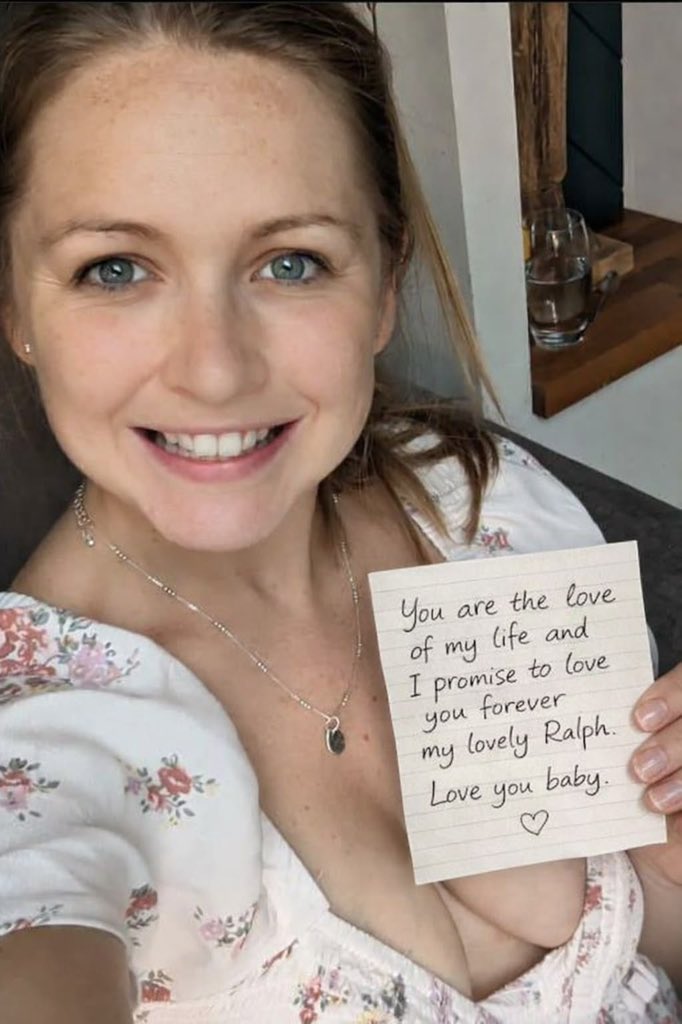 You are the love
of my life and
I promise to love
you forever
my lovely Ralph.
Love you baby.
♡